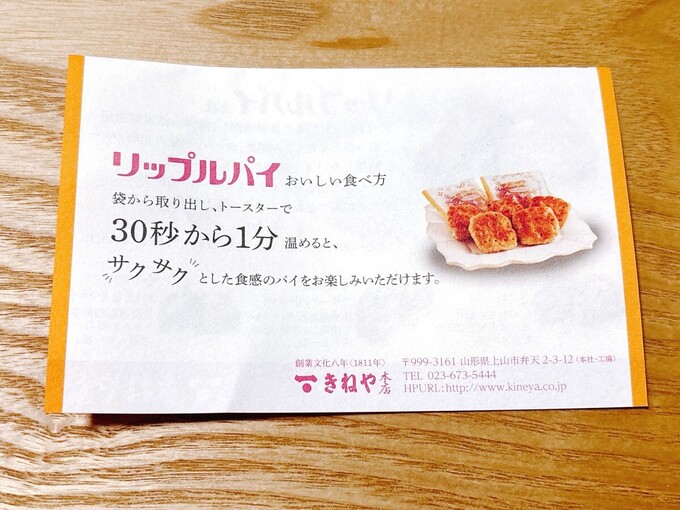 リップルパイ おいしい食べ方
袋から取り出し、トースターで
30秒から1分 温めると、
サクサク とした食感のパイをお楽しみいただけます。
創業文化八年〈1811年〉 〒999-3161 山形県上山市弁天 2-3-12（本社・工場）
きねや本店 TEL 023-673-5444
HPURL:http://www.kineya.co.jp